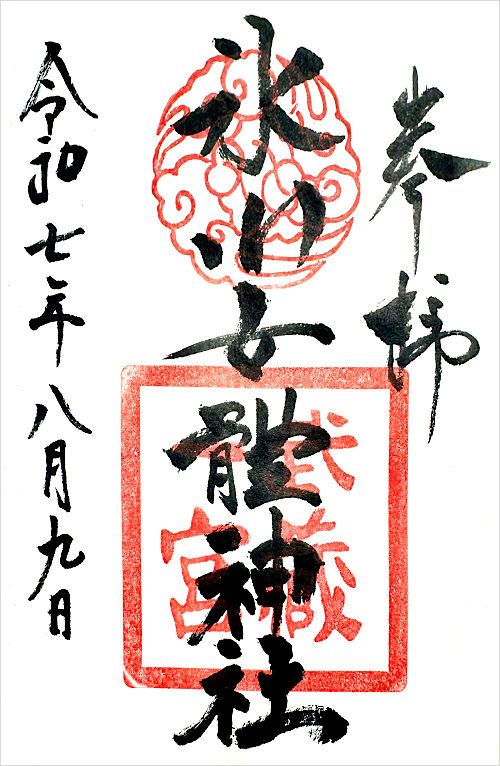 奉拝
氷川女體神社
武藏
一宮
令和七年八月九日